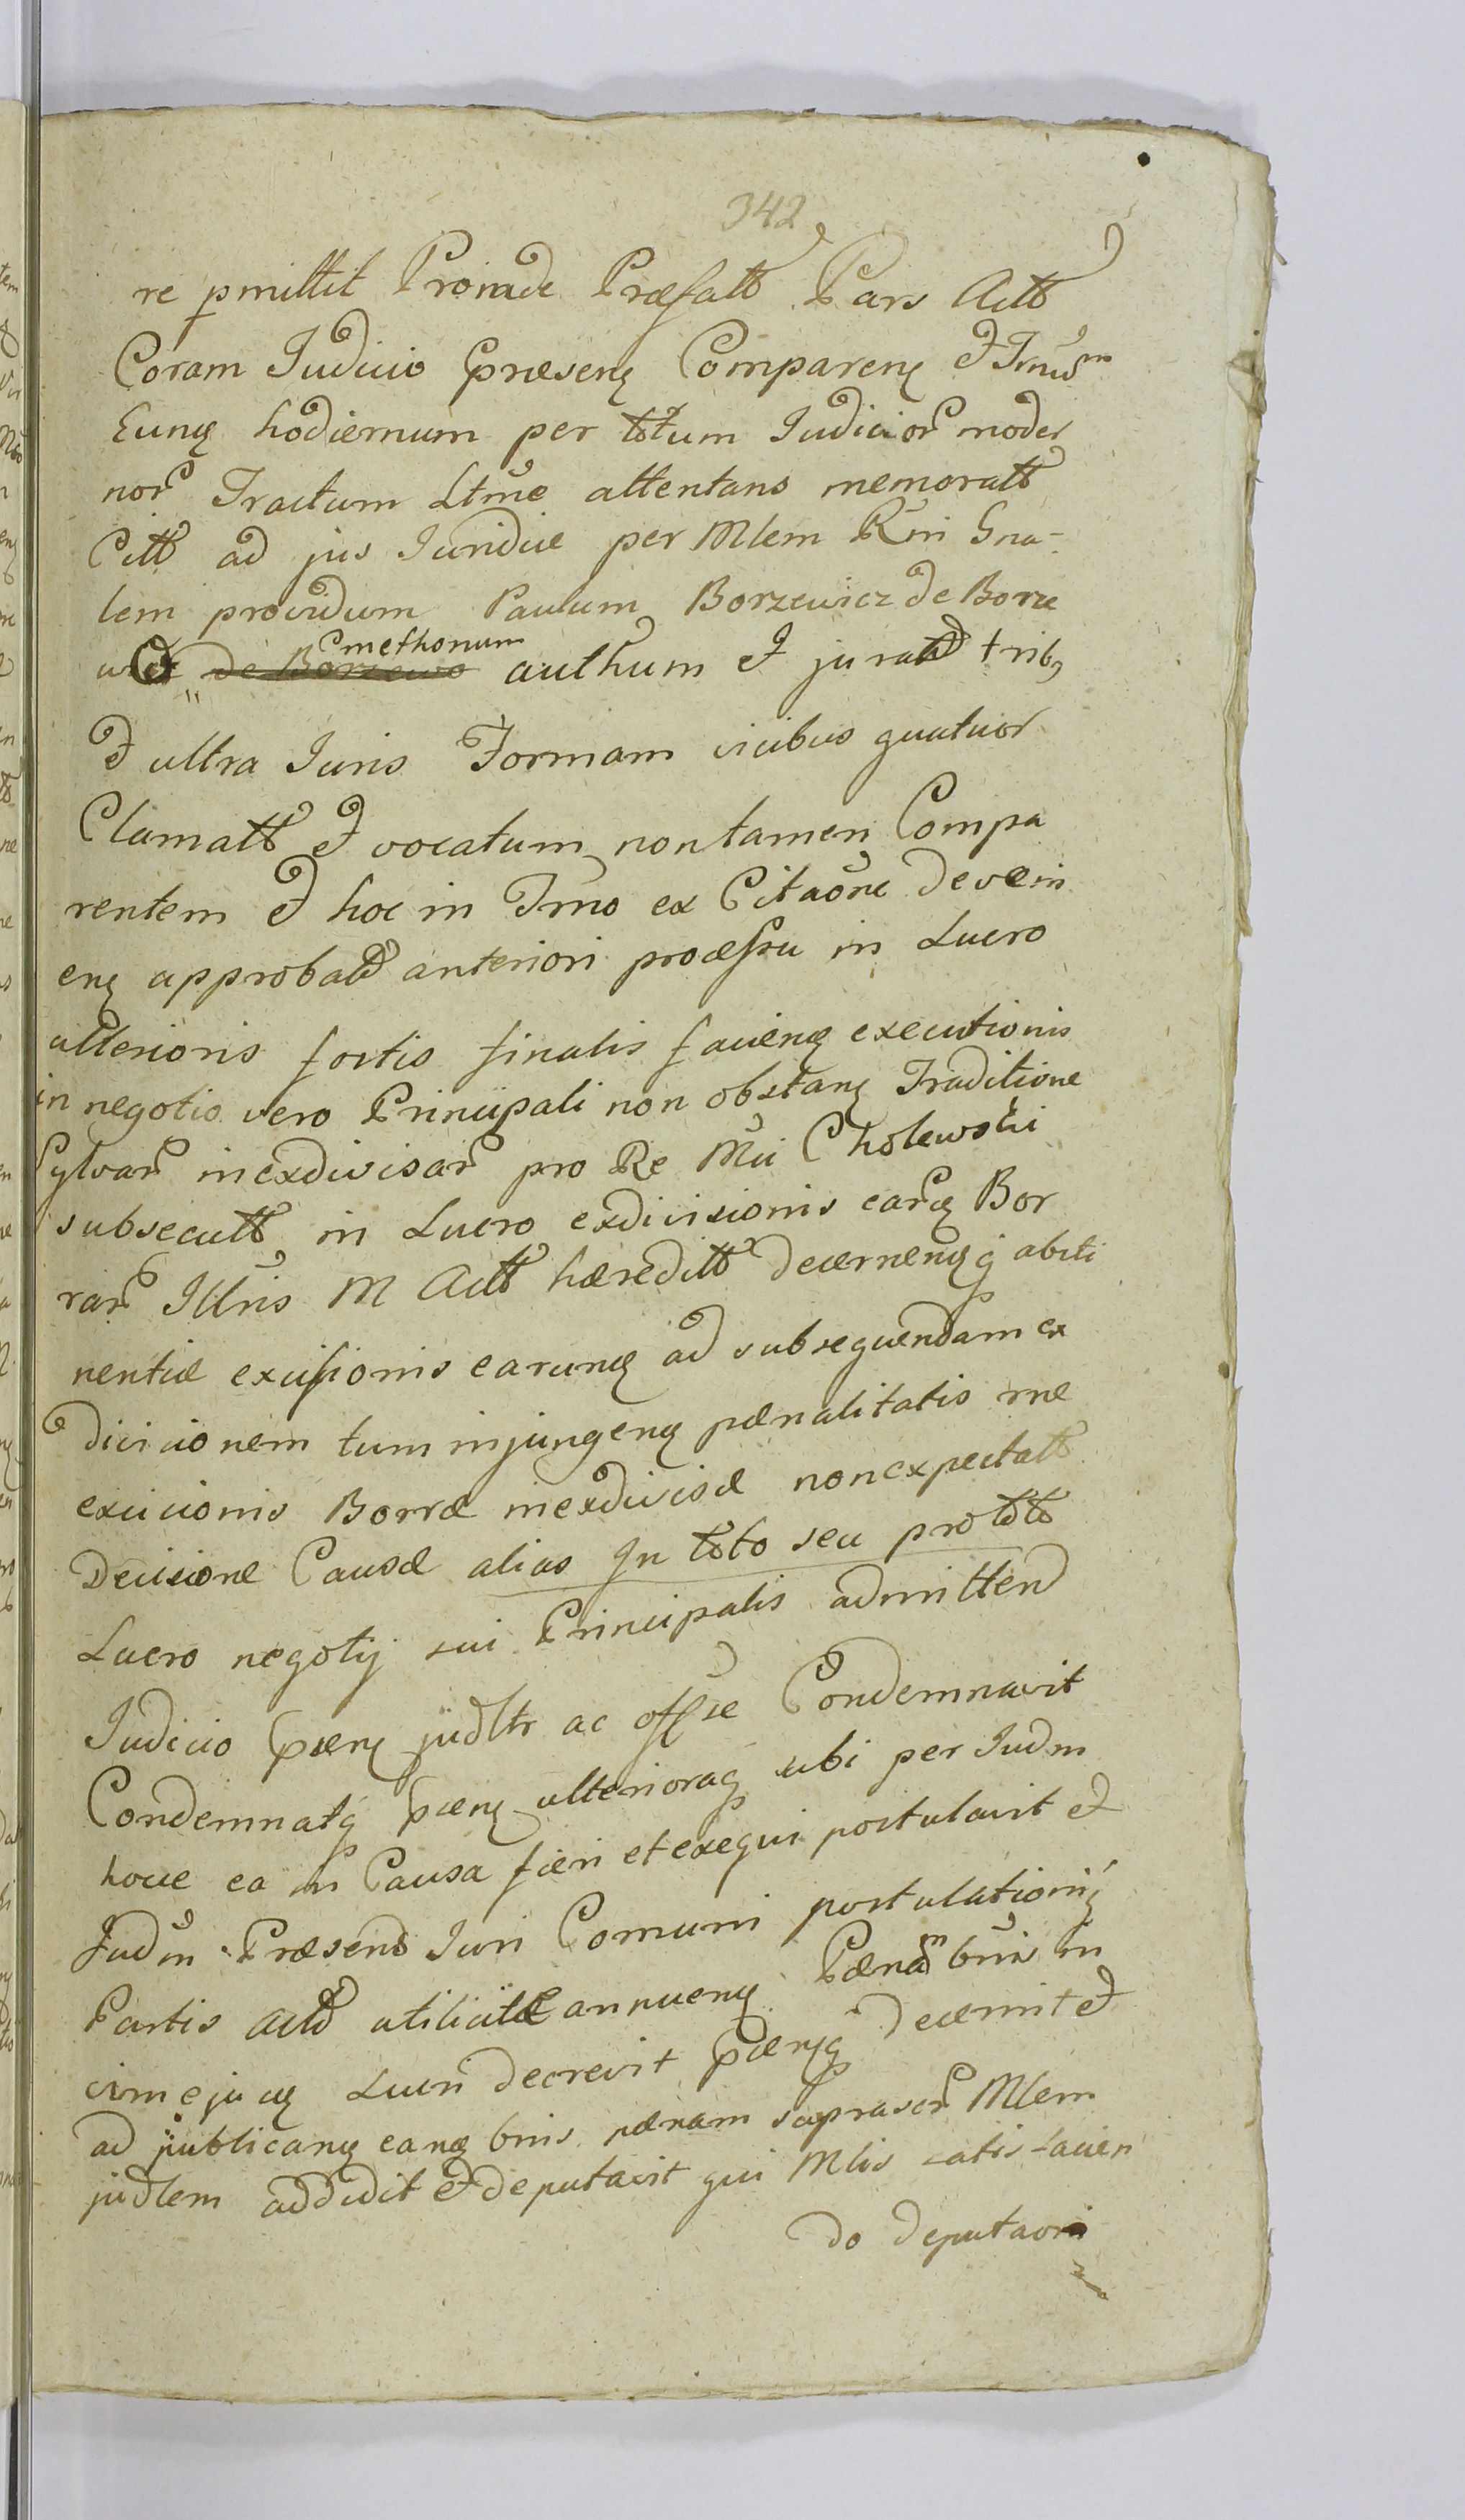 342
re pmittit Proinde Præfatt Pars Actt
Coram Judicio præsenti Comparens et Trmũm
Eunq hodiernum per totum Judicior moder
nor Tractum Ltme attentans memoratt
Citt ad jus Juridice per Mlem Rñi Gna-
lem providum Paulum Borzewicz de Borze
wo de Borzewo Cmethonum authum et juratt trib9
et ultra Juris Formam vicibus quatuor
Clamatt et vocatum non tamen Compa
rentem et hoc in Trno ex Citaõne deveni
enq approbatt anteriori processu in Lucro
ulterioris sortis finalis faciend executionis
in negotio vero Principali non obstanq Traditione
Sylvar inexdivisar pro Re Mũi Cholewski
subsecutt in Lucro exdivisionis earq Bor
rar Illris M Actt hæreditt decernenq q absti
nentiæ excisionis earunq ad subsequendam ex
divicionem tum injungenq pænalitatis rne
excicionis Borræ inexdivisæ non expectatt
Decisione Causæ alias In toto seu pro toto
Lucro negotij sui Principalis admittend
Judicio præn judltr ac offse Condemnavit
Condemnatq præn ulterioraq ubi per Judm
hocce ea in Causa fieri et exequi postulavit et
Judm Præsens Juri Comuni postulationiq
Partis Actt utilitatæ annuenq Pænam bnis in
ejuq Lucri decrevit prænq decernit et
ad publicanq eanq bnis pænam suprascr Mlem
judlem addidit et deputavit qui Mlis satisfacien
do deputaoni